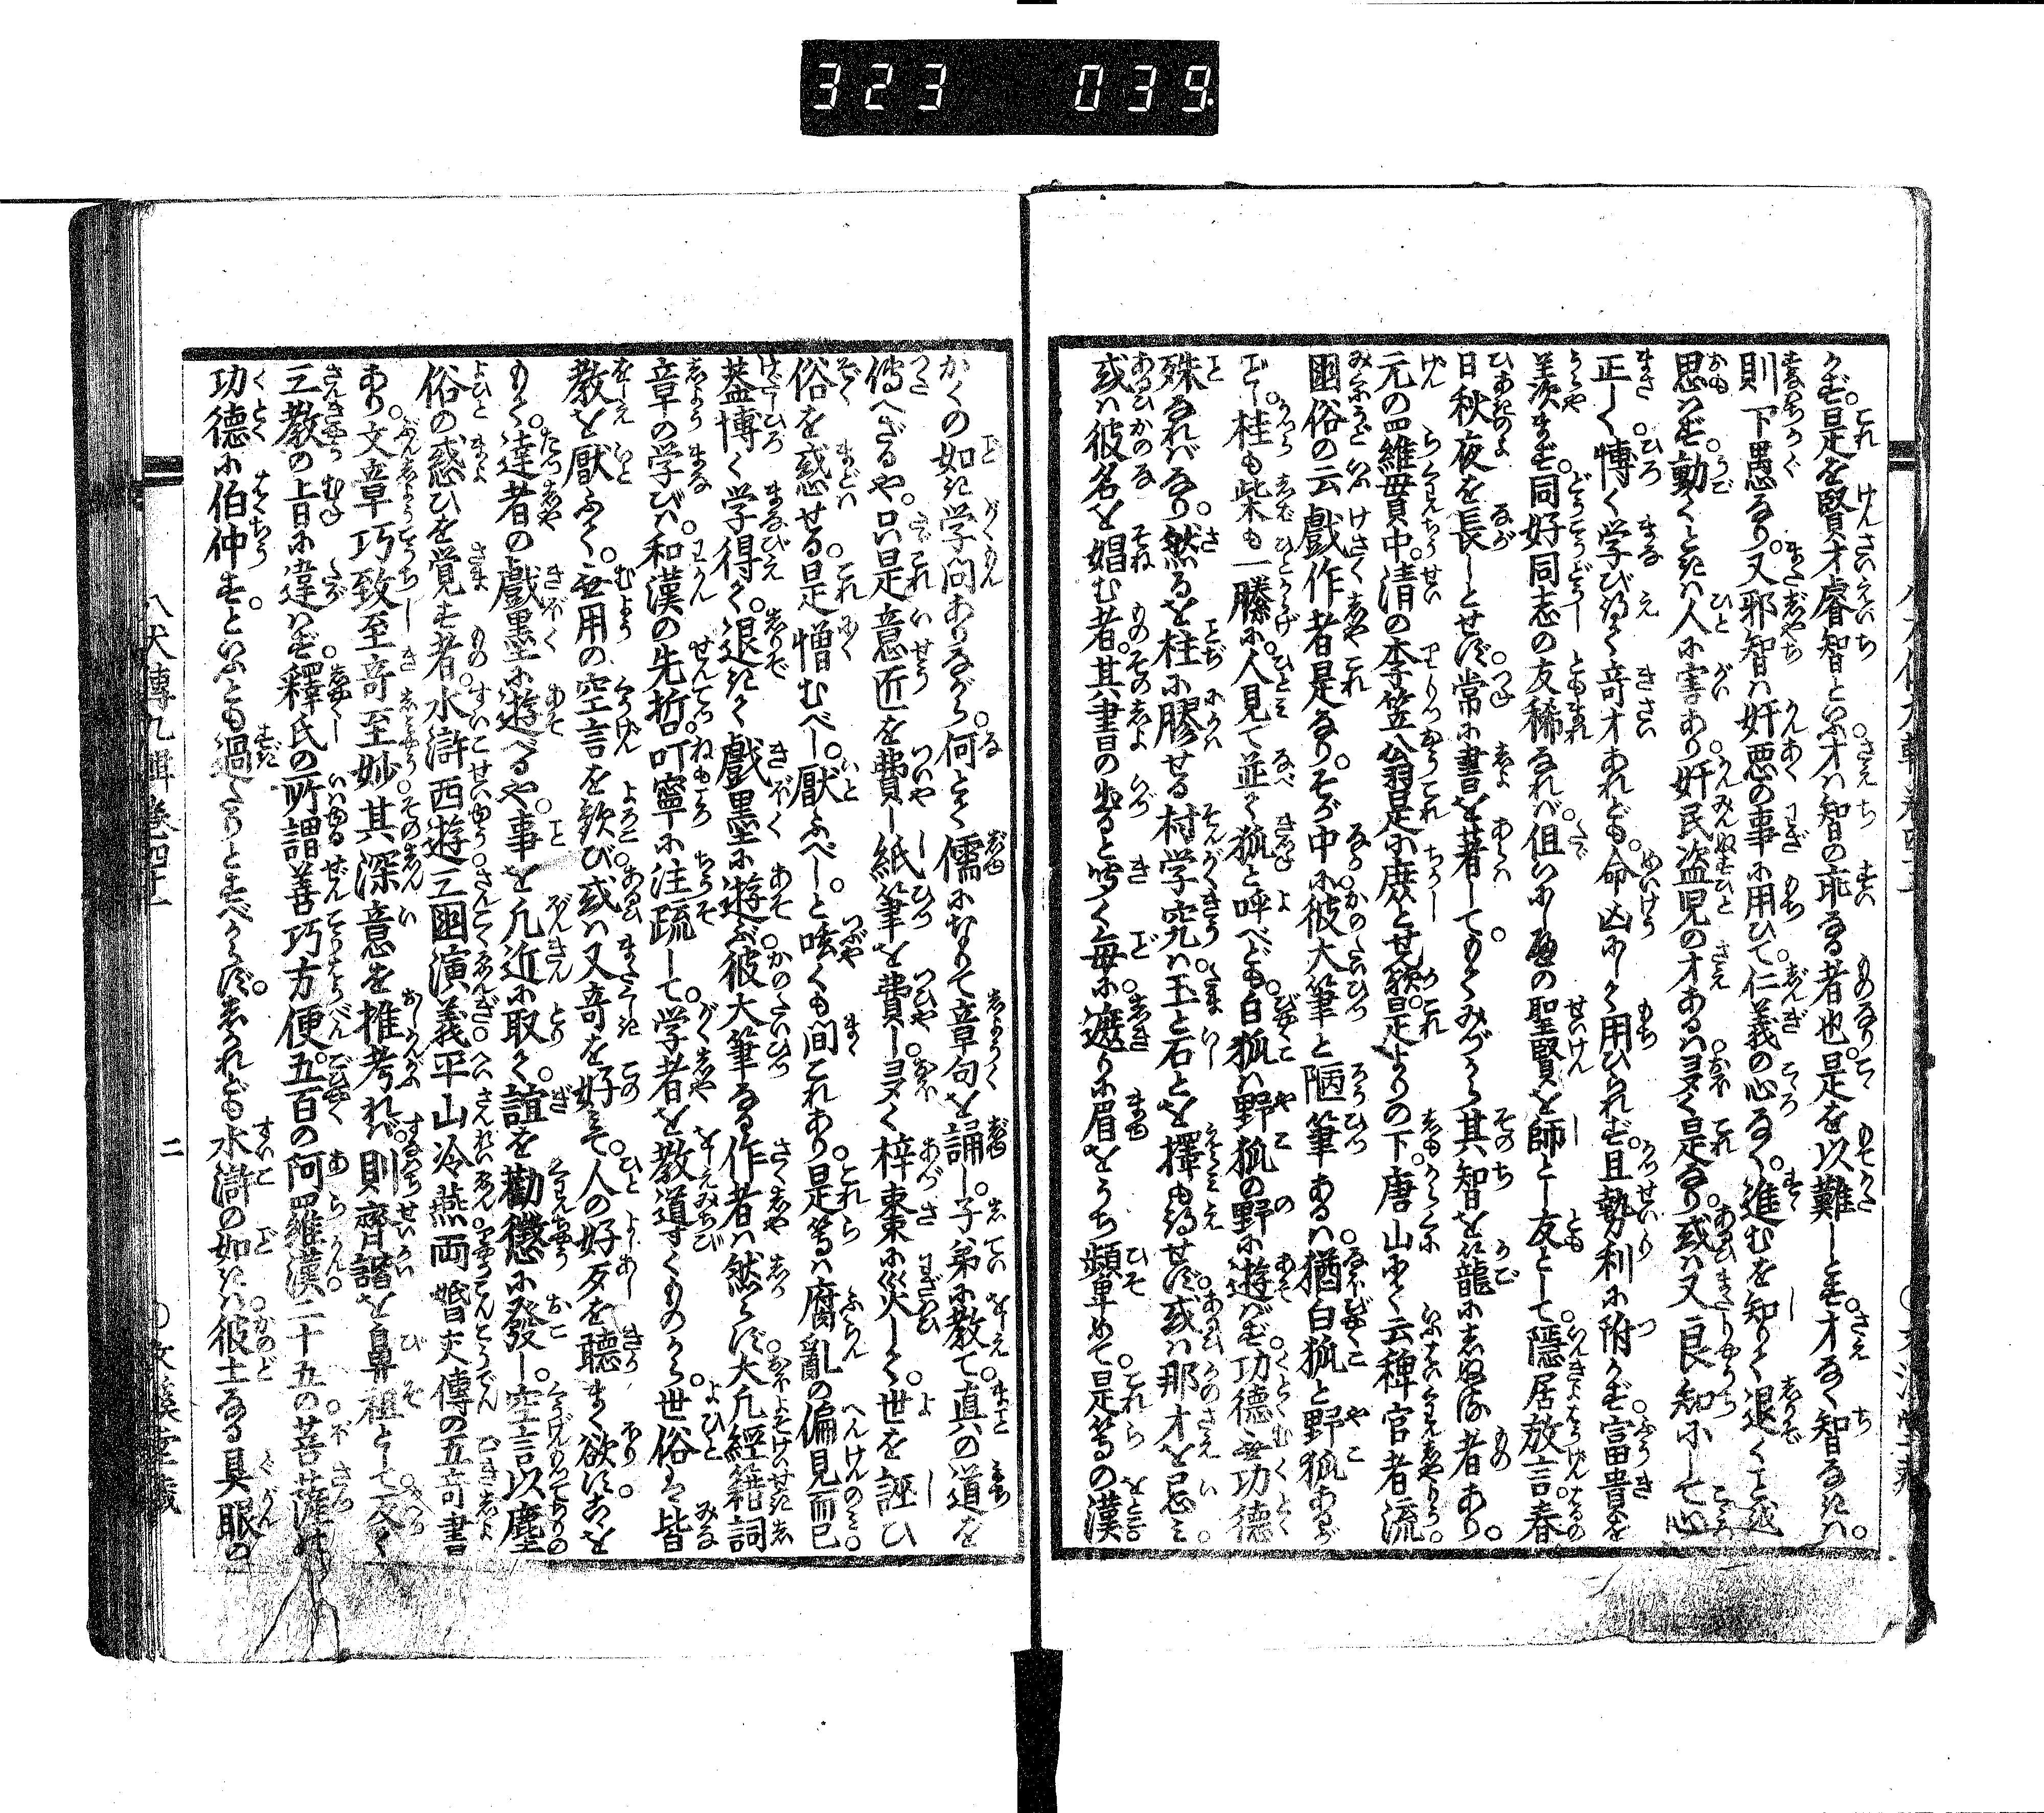 323 039
らず。是を賢才睿智といふ。才は智の乖なる者也。是を以難しとす。才なく智なきは。
則下愚なり。又邪智は奸悪の事に用ひて。仁義の心なく。進むを知りて退くことを
思はず。動くときは人に害あり。奸民盗児の才あるは多く是なり。或は又良知にして心
正しく。博く学び得て奇才あれども。命凶にして用ひられず。且勢利に附かず。富貴を
羨まず。同好同志の友稀なれば。但いにしへの聖賢を師とし友として。隠居放言。春
日秋夜を長しとせず。常に書を著してもてみづから其智を篭にしぬる者あり。
元の羅貫中。清の李笠翁是に庶とせん歟。是よりの下。唐山にて云稗官者流。
国俗の云戯作者是なり。そが中に。彼大筆と陋筆あるは。猶白狐と野狐あるが
ごとし。桂も柴も一縢に。人見て並て狐と呼べども。白狐は野狐の野に遊ばず。功徳無功徳
殊なればなり。然るを柱に膠せる村学究は。玉と石とを択も得せず。或は那才を忌み
或は彼名を娼む者。其書の出ると聞く毎に。遽に眉をうち顰めて。是等の漢
かくの如き学問ありながら。何とて儒になりて章句を誦し。子弟に教て。直の道を
傳へざるや。只是意匠を費し紙筆を費し多く梓棗に災して。世を誣ひ
俗を惑せる。是憎むべし。厭ふべし。と呟くも間これあり。是等は腐乱の偏見而已。
蓋博く学得て。退きて戯墨に遊ぶ。彼大筆なる作者は然らず。大凡経籍詞
章の学びは。和漢の先哲。叮寧に注疏して。学者を教道すくものから。世俗は皆
教を厭ふて。無用の空言を歓び。或は又奇を好みて。人の好歹を聴まく欲す。こを
もて。達者の戯墨に遊べるや。事を凡近に取て。誼を勧懲に發し。空言以塵
俗の惑ひを覚す者。水滸西遊三国演義平山冷燕両婚交傳の五奇書
あり。文章巧致至奇至妙。其深意を推考れば。則齊諧を鼻祖として。反て
三教の上旨に違はず。釋氏の所謂善巧方便。五百の阿羅漢二十五の菩薩の
功徳に伯仲す。といふとも過たりとすべからず。しかれども水滸の如きは。彼土なる具眼の
八犬傳九輯巻四十一
二
○文溪堂藏